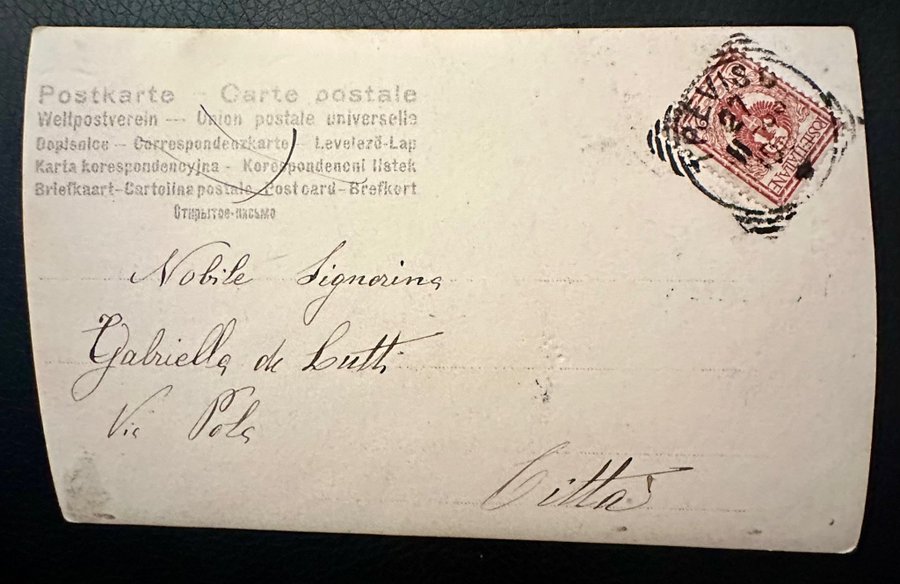 Postkarte – Carte postale
Weltpostverein — Union postale universelle
Dopisnice – Correspondenzkarte – Levelező-Lap
Karta korespondencyjna – Korespondencni listek
Briefkaart – Cartolina postale – Post card – Brefkort
Открытое-письмо
TREVISO
27
POSTE ITALIANE
Nobile Signorina
Gabriella de Lutti
Via Pola
Città